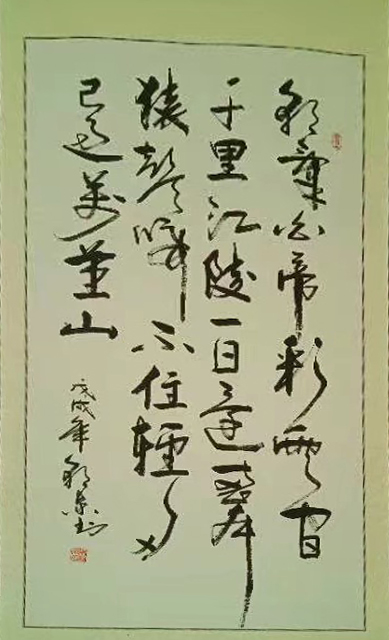 朝辞白帝彩雲间
千里江陵一日還两岸
猿聲啼不住輕舟
已過萬重山
戊戌年